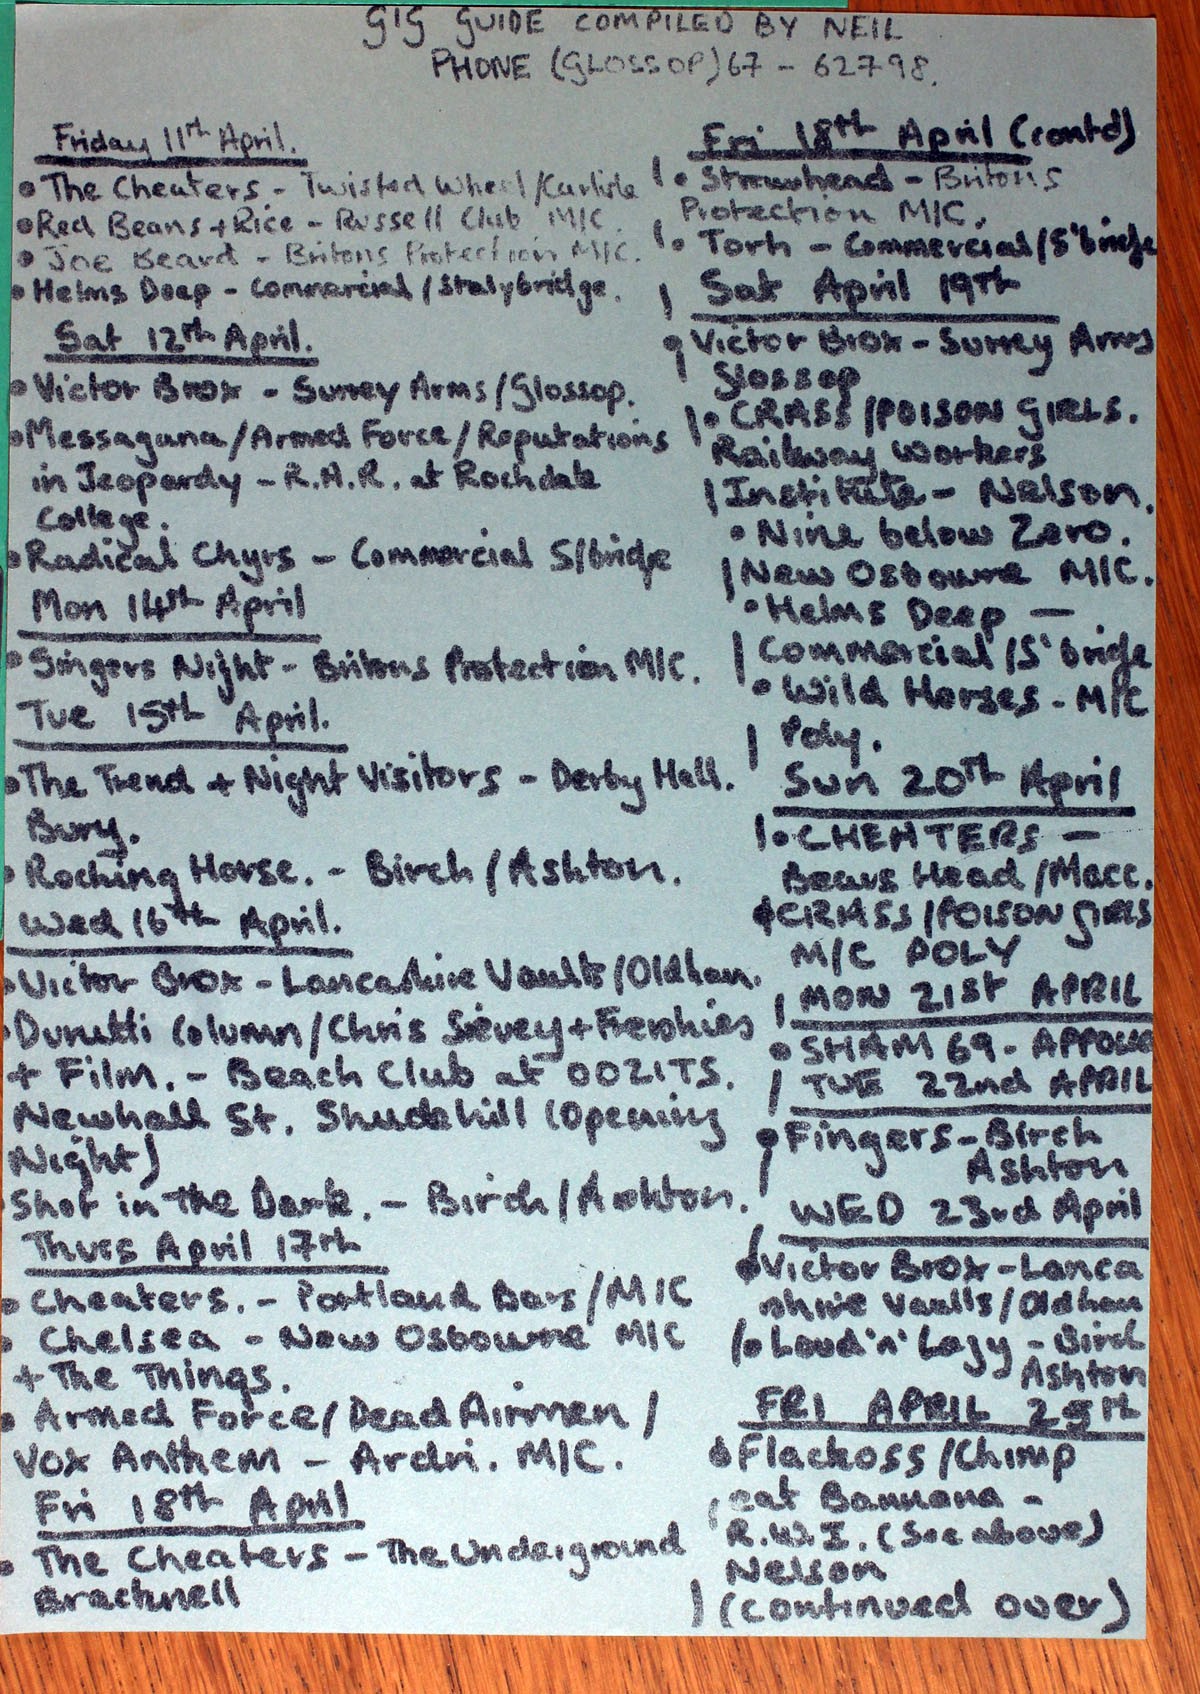 GIG GUIDE COMPILED BY NEIL
PHONE (GLOSSOP) 67 - 62798.
Friday 11th April.
• The Cheaters - Twisted Wheel/Carlisle
• Red Beans + Rice - Russell Club M/C.
• Joe Beard - Britons Protection M/C.
• Helms Deep - Commercial / Stalybridge.
Sat 12th April.
• Victor Brox - Surrey Arms/Glossop.
• Messaguna/Armed Force/Reputations
in Jeopardy - R.A.R. at Rochdale
College.
• Radical Chyrs - Commercial S/bridge
Mon 14th April
• Singers Night - Britons Protection M/C.
Tue 15th April.
• The Trend + Night Visitors - Derby Hall.
Bury.
• Rocking Horse. - Birch / Ashton.
Wed 16th April.
• Victor Brox - Lancashire Vaults/Oldham.
• Durutti Column/Chris Sievey + Freshies
+ Film. - Beach Club at OOZITS.
Newhall St. Shudehill (Opening
Night)
Shot in the Dark. - Birch / Ashton.
Thurs April 17th
• Cheaters. - Portland Bars / M/C
• Chelsea - New Osbourne M/C
+ The Things.
• Armed Force/Dead Airmen /
Vox Anthem - Ardri. M/C.
Fri 18th April
• The Cheaters - The Underground
Bracknell
Fri 18th April (contd)
• Strawhead - Britons
Protection M/C.
• Torh - Commercial/S'bridge
Sat April 19th
• Victor Brox - Surrey Arms
Glossop
• CRASS / POISON GIRLS.
Railway Workers
Institute - Nelson.
• Nine below Zero.
New Osbourne M/C.
• Helms Deep -
Commercial / S'bridge
• Wild Horses - M/C
Poly.
Sun 20th April
• CHEATERS -
Bears Head / Macc.
• CRASS / POISON GIRLS
M/C POLY
MON 21ST APRIL
• SHAM 69 - APPOLLO
TUE 22nd APRIL
• Fingers - Birch
Ashton
WED 23rd April
• Victor Brox - Lanca
shire Vaults / Oldham
• Loud 'n' Lazy - Birch
Ashton
FRI APRIL 25th
• Flackoss / Chimp
eat Bannana -
R.W.I. (See above)
Nelson
(continued over)